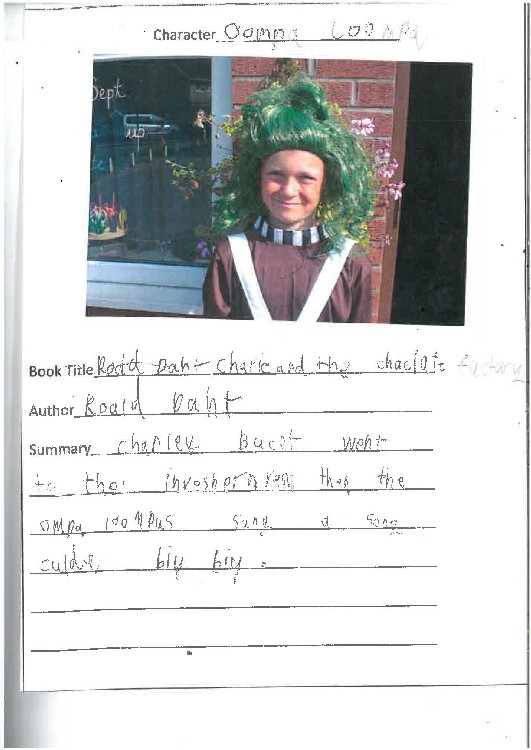 Character Oompa Loompa
Sept
up
Book Title Roald Dahl Charie and the choclote factory
Author Roald Dahl
Summary charley Bucet went
to the invoshon room thos the
ompa loompas sang a song
culde biy biy.